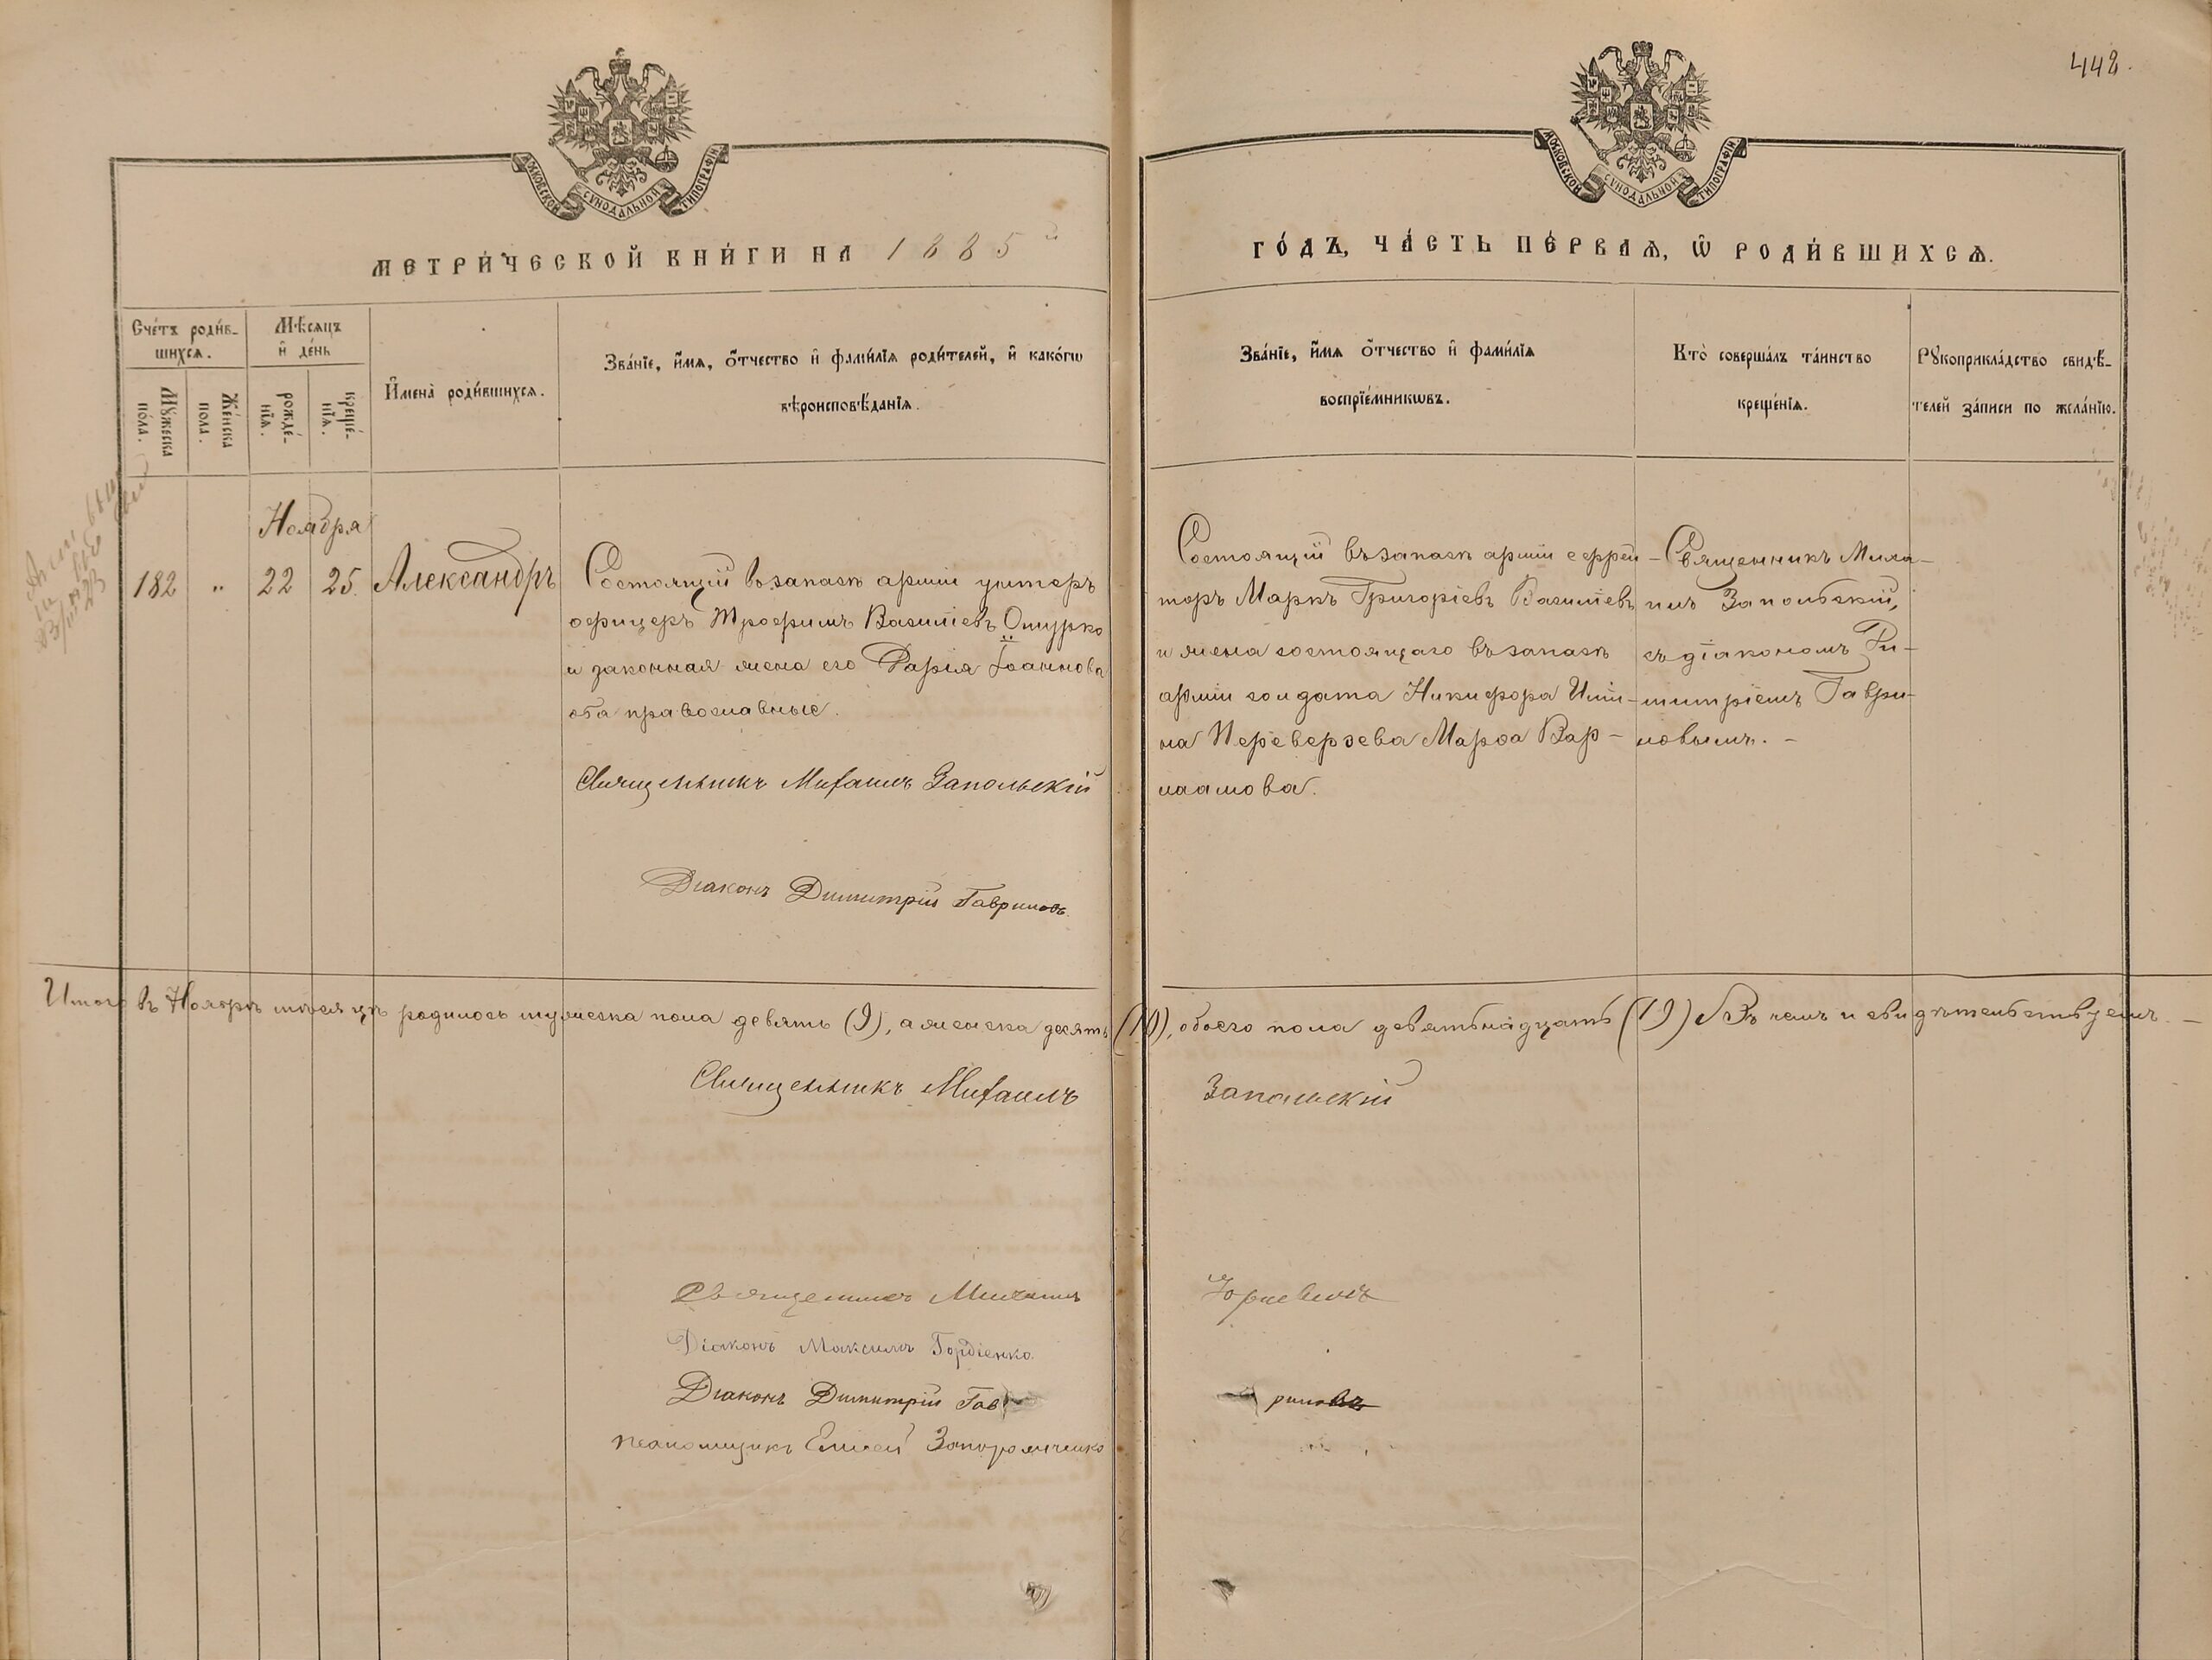 442.
МОСКОВСКОЙ СѴНОДАЛЬНОЙ ТИПОГРАФІИ
МОСКОВСКОЙ СѴНОДАЛЬНОЙ ТИПОГРАФІИ
МЕТРИ́ЧЕСКОЙ КНИ́ГИ НА 1885
ГО́ДЪ, ЧА́СТЬ ПЕ́РВАѦ, Ѽ РОДИ́ВШИХСѦ.
Сче́тъ роди́в-
шихсѧ.
Мѣ́сѧцъ
и҆ де́нь
Мꙋ́жеска
по́ла.
Же́нска
пола.
рожде́-
нїѧ.
креще́-
нїѧ.
И҆мена̀ роди́вшихсѧ.
Зва́нїе, и҆́мѧ, ѻ҆́тчество и҆ фами́лїѧ роди́телей, и҆ како́гѡ
вѣроисповѣ́данїѧ.
Зва́нїе, и҆́мѧ ѻ҆́тчество и҆ фами́лїѧ
воспрїе́мникѡвъ.
Кто̀ соверша́лъ та́инство
креще́нїѧ.
Рꙋкоприкла́дство свидѣ́-
телей за́писи по жела́нїю.
Ноября
182 „ 22 25. Александръ
Состоящій въ запасѣ арміи унтеръ
офицеръ Трофимъ Василіевъ Ошурко
и законная жена его Дарія Іоаннова
оба православные.
Священникъ Михаилъ Запольскій
Діаконъ Димитрій Гавриловъ.
Состоящій въ запасѣ арміи ефрей-
торъ Маркъ Григоріевъ Василіевъ
и жена состоящаго въ запасѣ
арміи солдата Никифора Ильи-
на Переверзева Марѳа Вар-
лаамова.
Священникъ Миха-
илъ Запольскій,
съ діакономъ Ди-
митріемъ Гаври-
ловымъ. -
Итого въ Ноябрѣ мѣсяцѣ родилось мужеска пола девять (9), а женска десять (10), обоего пола девятьнадцать (19) Въ чемъ и свидѣтельствуемъ. -
Священникъ Михаилъ Запольскій
Священникъ Михаилъ Юркевичъ
Діаконъ Максимъ Гордіенко.
Діаконъ Димитрій Гавриловъ
Псаломщикъ Елисей Запорожченко